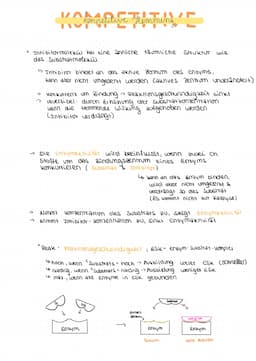 KOMPETITIVE
kompetitive Hemmung
* Inhibitormolekül hat eine ähnliche räumliche Struktur wie
das Substratmolekül
Inhibitor bindet an das aktive Zentrum des Enzyms,
kann aber nicht umgesetzt werden (aktives Zentrum unverändert)
Konkurrenz um Bindung → Reaktionsgeschwindigkeit sinkt
reversibel: durch Erhöhung der Substratkonzentration
kann die hemmende Wirkung aufgehoben werden
(Inhibitor verdrängt)
Die Enzymaktivität wird beeinflusst, wenn zwei
Stoffe um das Bindungszentrum eines Enzyms
konkurrieren (Substrat & Inhibitor)
kann an das Enzym binden,
wird aber nicht umgesetzt &
verdrängt so das Substrat
(Es kommt nicht zur Katalyse)
→ nimmt Konzentration des Substrats zu, steigt Enzymaktivität
→ nimmt Inhibitor-Konzentration zu, sinkt Enzymaktivität
Reaktionsgeschwindigkeit: ESK - Enzym Substrat-Komplex
hoch, wenn Substrats - hoch → Ausbildung vieler ESK (schneller)
niedrig, wenn Substrats - niedrig → Ausbildung weniger ESK
max., wenn alle Enzyme in ESK gebunden
Enzym
Enzym
Enzym